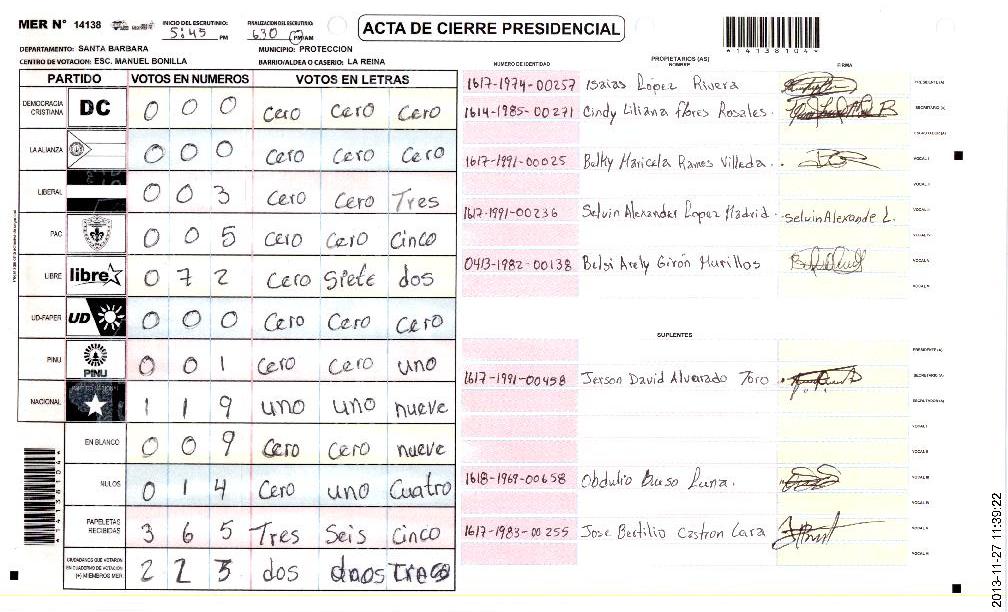 MER N° 14138
INICIO DEL ESCRUTINIO: 5:45 PM
FINALIZACION DEL ESCRUTINIO: 630 PM AM
ACTA DE CIERRE PRESIDENCIAL
*14138104*
DEPARTAMENTO: SANTA BARBARA MUNICIPIO: PROTECCION
CENTRO DE VOTACION: ESC. MANUEL BONILLA BARRIO/ALDEA O CASERIO: LA REINA
PARTIDO VOTOS EN NUMEROS VOTOS EN LETRAS
DEMOCRACIA CRISTIANA DC 0 0 0 cero cero cero
LA ALIANZA 0 0 0 cero cero cero
LIBERAL 0 0 3 cero cero Tres
PAC 0 0 5 cero cero cinco
LIBRE libre 0 7 2 cero siete dos
UD-FAPER UD 0 0 0 cero cero cero
PINU PINU 0 0 1 cero cero uno
NACIONAL 1 1 9 uno uno nueve
EN BLANCO 0 0 9 cero cero nueve
NULOS 0 1 4 cero uno cuatro
PAPELETAS RECIBIDAS 3 6 5 Tres seis cinco
CIUDADANOS QUE VOTARON EN CUADERNO DE VOTACION (+) MIEMBROS MER 2 2 3 dos
*14138104*
PROPIETARIOS (AS)
NUMERO DE IDENTIDAD NOMBRE FIRMA
1617-1974-00257 Isaias López Rivera PRESIDENTE (A)
1614-1985-00271 Cindy Liliana flores Rosales. SECRETARIO (A)
ESCRUTADOR (A)
1617-1991-00025 Belky Maricela Ramos Villeda. VOCAL I
VOCAL II
1617-1991-00236 Selvin Alexander Lopez Madrid selvin Alexande L. VOCAL III
VOCAL IV
0413-1982-00138 Belsi Arely Girón Murillos VOCAL V
VOCAL VI
SUPLENTES
PRESIDENTE (A)
1617-1991-00458 Jerson David Alvarado Toro SECRETARIO (A)
ESCRUTADOR (A)
VOCAL I
VOCAL II
1618-1969-00658 Obdulio Luna. VOCAL III
VOCAL IV
1617-1983-00255 Jose Bertilio Castron Lara VOCAL V
VOCAL VI
2013-11-27 11:39:22